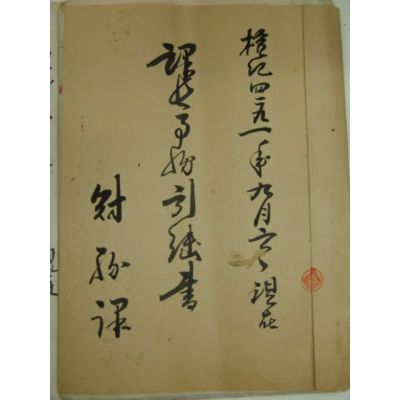 檀紀四二九一年九月六日現在
課長事務引継書
財務課